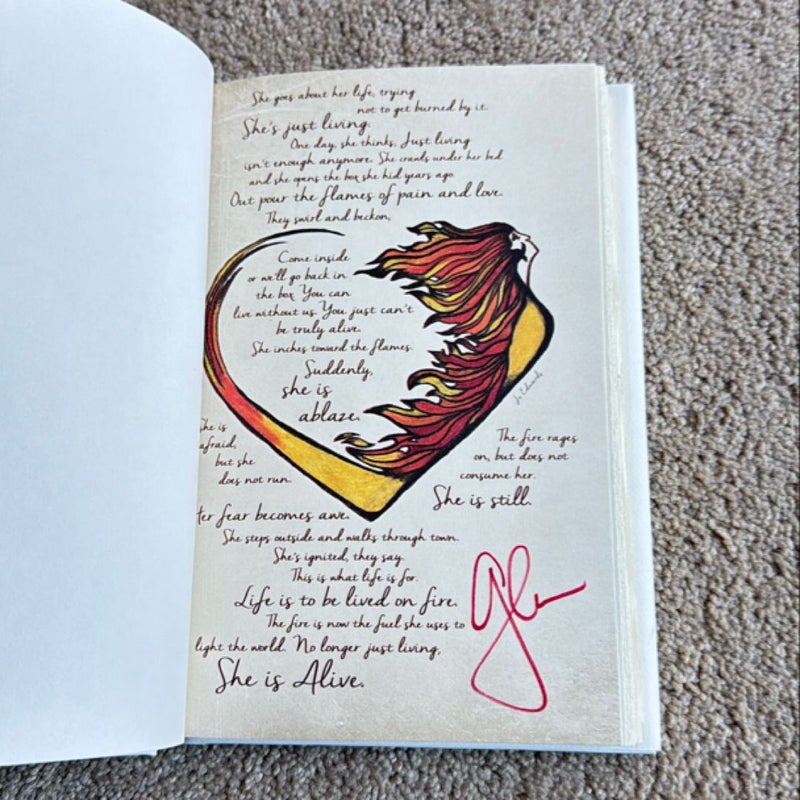 She goes about her life, trying
not to get burned by it.
She's just living.
One day, she thinks, Just living
isn't enough anymore. She crawls under her bed
and she opens the box she hid years ago.
Out pour the flames of pain and love.
They swirl and beckon,
Come inside
or we'll go back in
the box. You can
live without us. You just can't
be truly alive.
She inches toward the flames.
Suddenly,
she is
ablaze.
She is
afraid,
but she
does not run.
The fire rages
on, but does not
consume her.
She is still.
Her fear becomes awe.
She steps outside and walks through town.
She's ignited, they say.
This is what life is for.
Life is to be lived on fire.
The fire is now the fuel she uses to
light the world. No longer just living,
She is Alive.